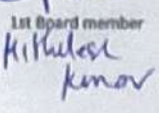 1st Board member
Mithulesh
Kumar